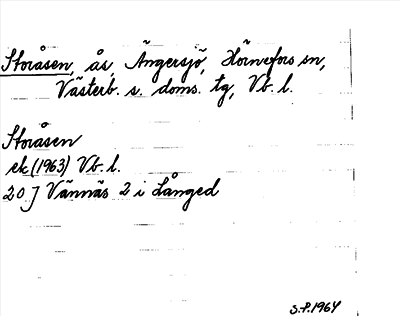 Storåsen, ås, Ängersjö, Hörnefors sn,
Västerb. s. doms. tg, Vb. l.
Storåsen
ek (1963) Vb. l.
20 J Vännäs 2 i Långed
S.P. 1964